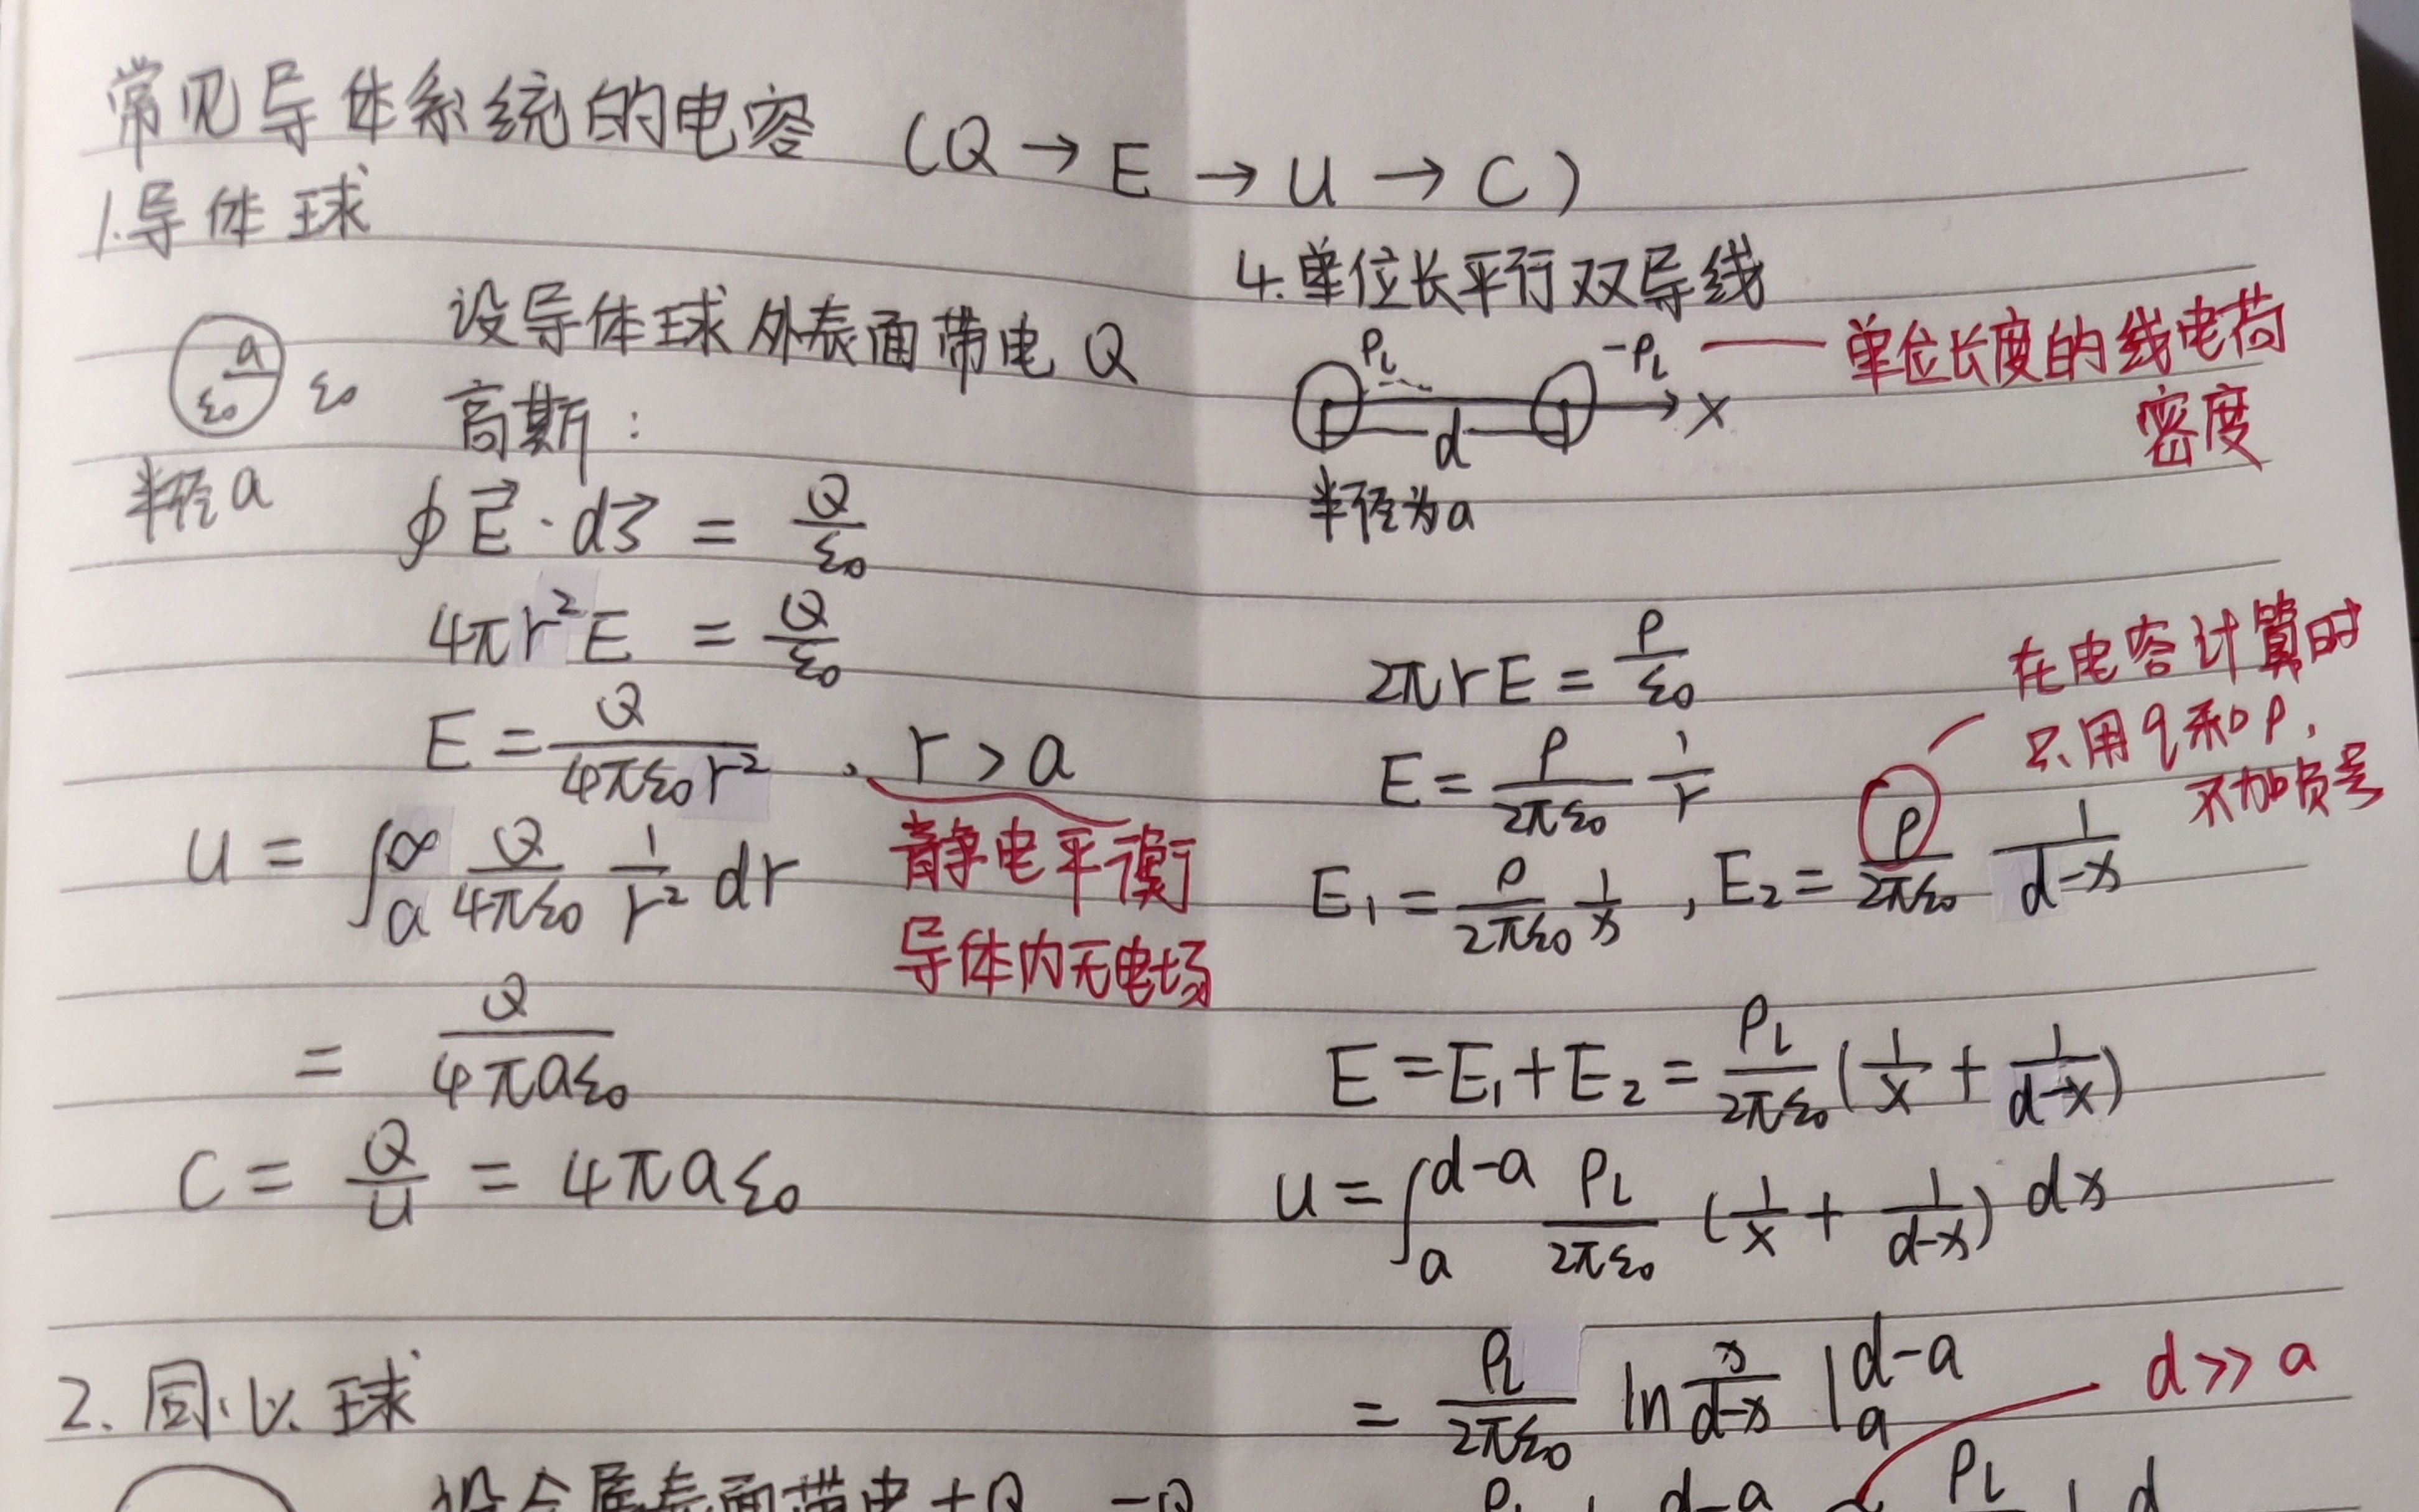 常见导体系统的电容 (Q → E → U → C)
1.导体球
设导体球外表面带电 Q
a
ε₀ ε₀
半径a
高斯：
∮E⃗·dS⃗ = Q/ε₀
4πr²E = Q/ε₀
E = Q/(4πε₀r²) , r > a
静电平衡
导体内无电场
U = ∫ₐ^∞ Q/(4πε₀) 1/r² dr
= Q/(4πaε₀)
C = Q/U = 4πaε₀
2. 同心球
设金属表面带电+Q, -Q
4.单位长平行双导线
ρₗ -ρₗ —— 单位长度的线电荷
密度
d x
半径为a
2πrE = ρ/ε₀
E = ρ/(2πε₀) 1/r
在电容计算时
只用q和ρ,
不加负号
E₁ = ρ/(2πε₀) 1/x , E₂ = ρ/(2πε₀) 1/(d-x)
E = E₁+E₂ = ρₗ/(2πε₀) (1/x + 1/(d-x))
U = ∫ₐ^(d-a) ρₗ/(2πε₀) (1/x + 1/(d-x)) dx
= ρₗ/(2πε₀) ln x/(d-x) |ₐ^(d-a)
d>>a
d-a ρₗ d